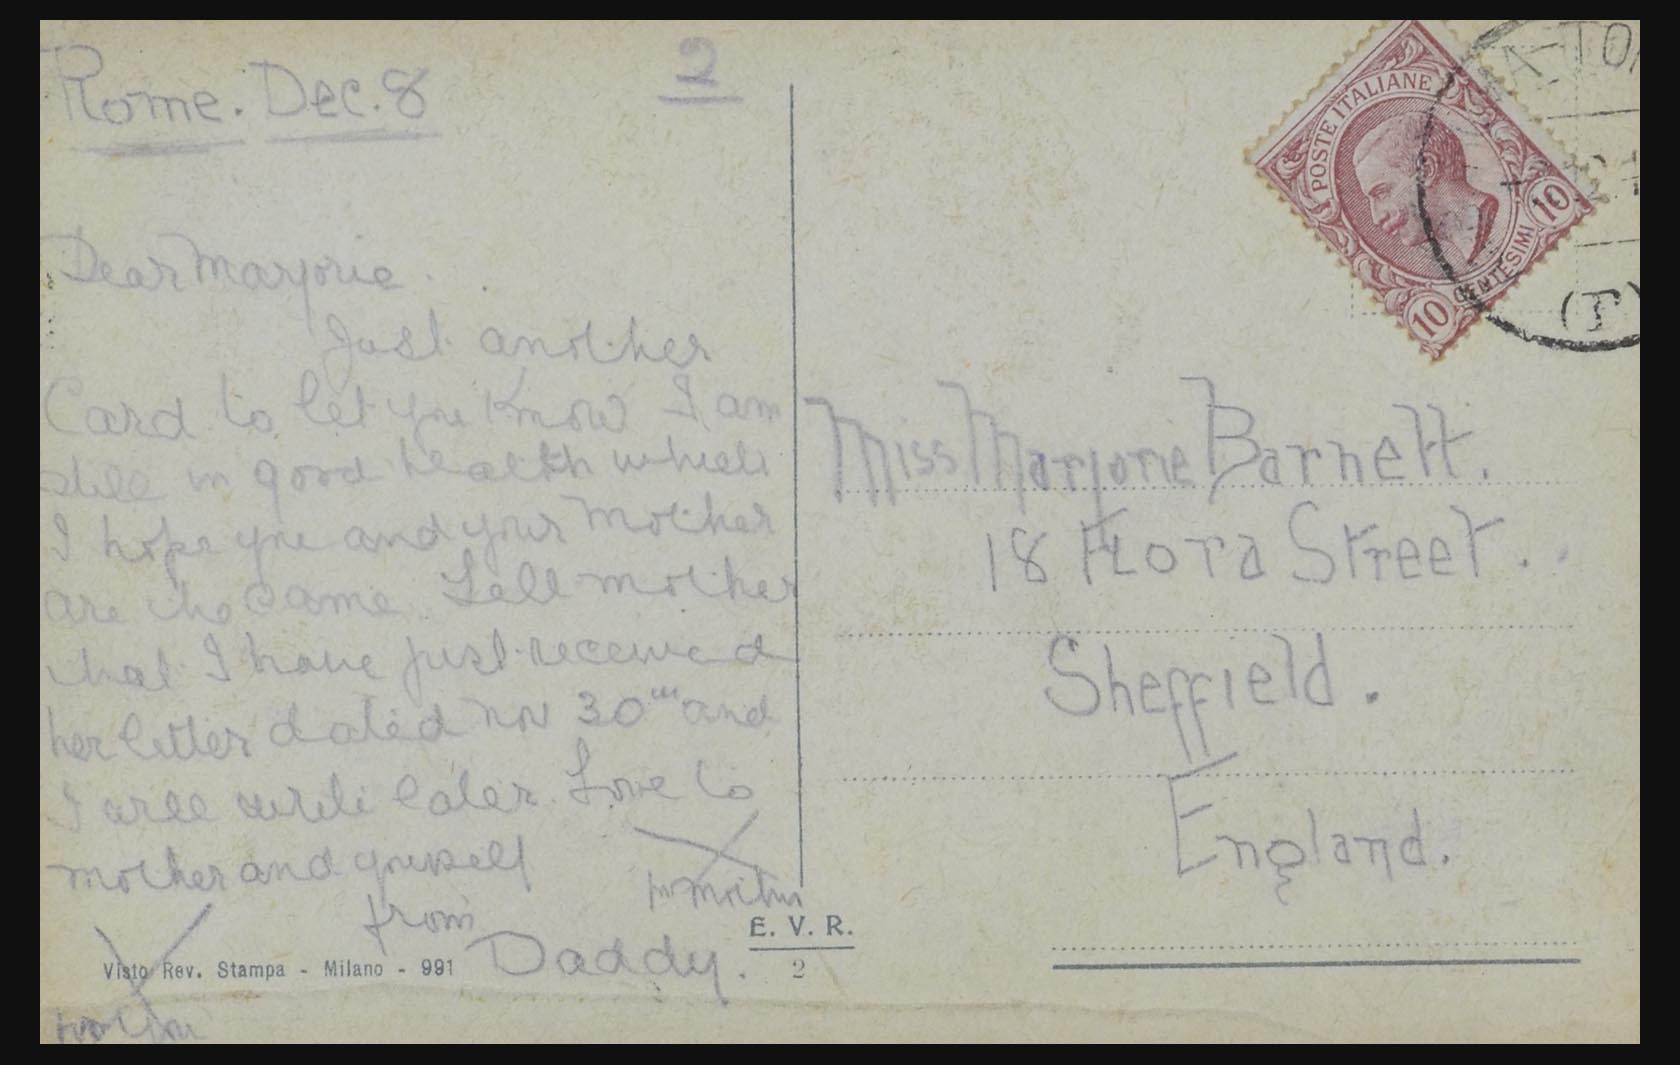 Rome. Dec. 8
2
Dear Marjorie.
Just another
Card to let you know I am
still in good health which
I hope you and your mother
are the same. Tell mother
that I have just received
her letter dated Nov 30th and
I will write later. Love to
mother and yourself
from
Daddy.
X
for mother
X
for you
Visto Rev. Stampa - Milano - 991
E. V. R.
2
POSTE ITALIANE
10
CENTESIMI
10
(T)
Miss Marjorie Barnett.
18 Flora Street.
Sheffield.
England.